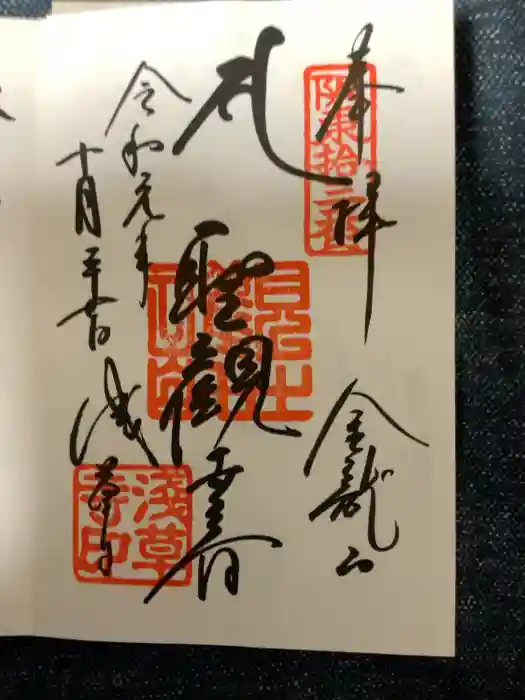 奉拝
坂東拾三番
金龍山
聖観音
令和元年
十月二十日
浅草寺
浅草寺印